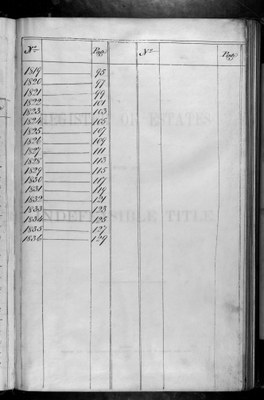 No Pag. No Pag.
1819 95
1820 97
1821 99
1822 101
1823 103
1824 105
1825 107
1826 109
1827 111
1828 113
1829 115
1830 117
1831 119
1832 121
1833 123
1834 125
1835 127
1836 129